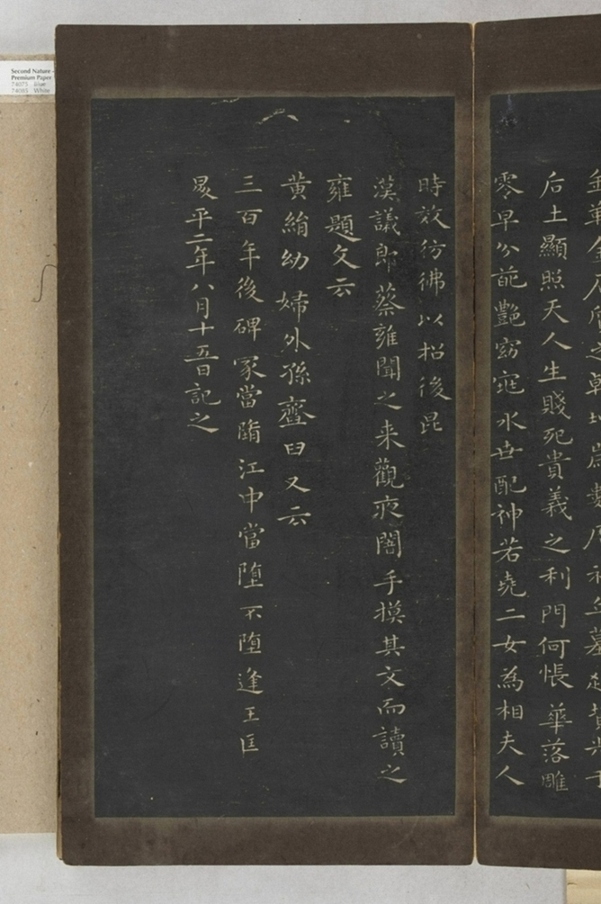 金華金石
后土顯照天人生賤死貴義之利門何悵華落雕
零早分葩艷窈窕永世配神若堯二女為相夫人
時效彷彿以招後昆
漢議郎蔡雍聞之来觀夜闇手摸其文而讀之
雍題文云
黃絹幼婦外孫齏臼又云
三百年後碑冢當墮江中當墮不墮逢王匡
昇平二年八月十五日記之
Second Nature
Premium Paper
74075 Blue
74080 White